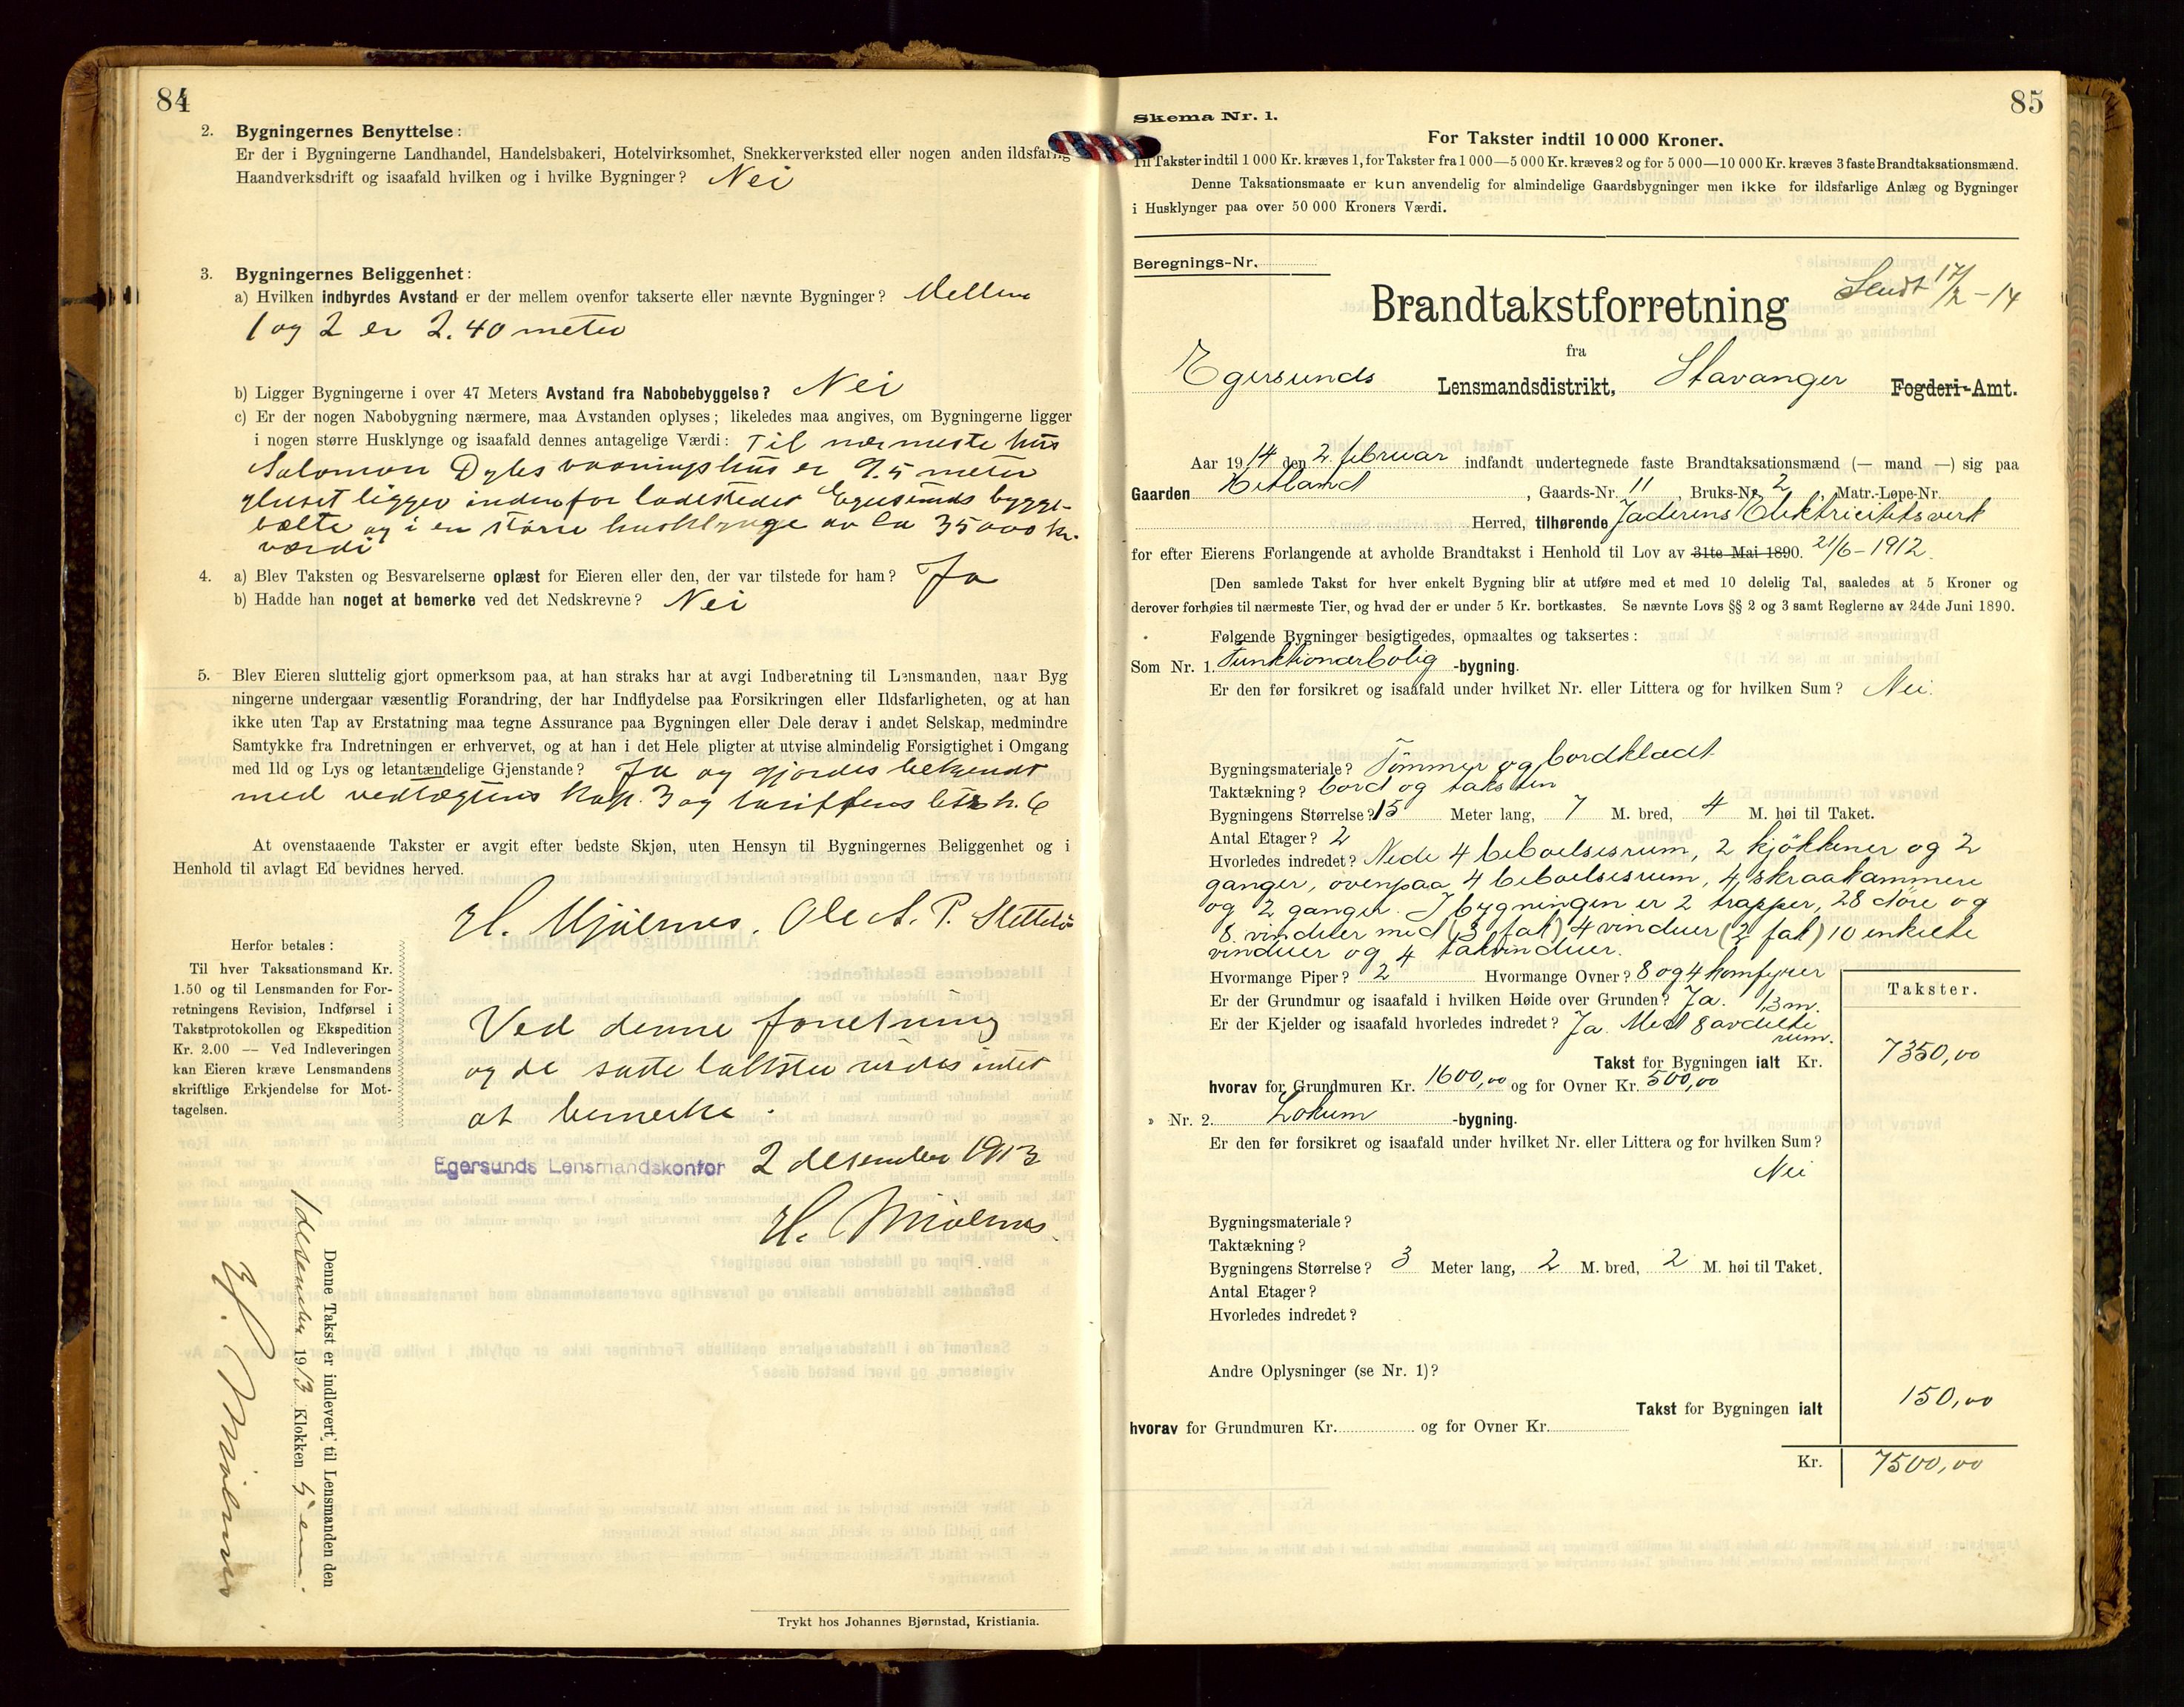 84
2. Bygningernes Benyttelse:
Er der i Bygningerne Landhandel, Handelsbakeri, Hotelvirksomhet, Snekkerverksted eller nogen anden ildsfarlig
Haandverksdrift og isaafald hvilken og i hvilke Bygninger? Nei
3. Bygningernes Beliggenhet:
a) Hvilken indbyrdes Avstand er der mellem ovenfor takserte eller nævnte Bygninger? Mellem
1 og 2 er 2.40 meter
b) Ligger Bygningerne i over 47 Meters Avstand fra Nabobebyggelse? Nei
c) Er der nogen Nabobygning nærmere, maa Avstanden oplyses; likeledes maa angives, om Bygningerne ligger
i nogen større Husklynge og isaafald dennes antagelige Værdi: Til nærmeste hus
Salomon Dybs vaaningshus er 9.5 meter
Huset ligger indenfor ladestedet Egersunds bygge-
bælte og i en større husklynge av ca 35000 kr.
værdi
4. a) Blev Taksten og Besvarelserne oplæst for Eieren eller den, der var tilstede for ham? Ja
b) Hadde han noget at bemerke ved det Nedskrevne? Nei
5. Blev Eieren sluttelig gjort opmerksom paa, at han straks har at avgi Indberetning til Lensmanden, naar Byg
ningerne undergaar væsentlig Forandring, der har Indflydelse paa Forsikringen eller Ildsfarligheten, og at han
ikke uten Tap av Erstatning maa tegne Assurance paa Bygningen eller Dele derav i andet Selskap, medmindre
Samtykke fra Indretningen er erhvervet, og at han i det Hele pligter at utvise almindelig Forsigtighet i Omgang
med Ild og Lys og letantændelige Gjenstande? Ja og gjordes bekjendt
med vedtægtens kap. 3 og tariffens
At ovenstaaende Takster er avgit efter bedste Skjøn, uten Hensyn til Bygningernes Beliggenhet og i
Henhold til avlagt Ed bevidnes herved.
H. Mjølernes. Ole A. P.
Herfor betales:
Til hver Taksationsmand Kr.
1.50 og til Lensmanden for For-
retningens Revision, Indførsel i
Takstprotokollen og Ekspedition
Kr. 2.00 — Ved Indleveringen
kan Eieren kræve Lensmandens
skriftlige Erkjendelse for Mot-
tagelsen.
Ved denne forretning
og de satte takster vides intet
at bemerke.
Egersunds Lensmandskontor 2 desember 1913
H. Mjølernes.
Denne Takst er indlevert til Lensmanden den
1 desember 1913 Klokken 5 em.
H. Mjølernes
Trykt hos Johannes Bjørnstad, Kristiania.
85
Skema Nr. 1.
For Takster indtil 10 000 Kroner.
Til Takster indtil 1 000 Kr. kræves 1, for Takster fra 1 000—5 000 Kr. kræves 2 og for 5 000—10 000 Kr. kræves 3 faste Brandtaksationsmænd.
Denne Taksationsmaate er kun anvendelig for almindelige Gaardsbygninger men ikke for ildsfarlige Anlæg og Bygninger
i Husklynger paa over 50 000 Kroners Værdi.
Beregnings-Nr.
Sendt 17/2-14
Brandtakstforretning
fra
Egersunds Lensmandsdistrikt, Stavanger Fogderi-Amt.
Aar 1914 den 2 februar indfandt undertegnede faste Brandtaksationsmænd (— mand —) sig paa
Gaarden Hetland, Gaards-Nr. 11, Bruks-Nr. 2, Matr.-Løpe-Nr.
Herred, tilhørende Jæderens Elektricitetsverk
for efter Eierens Forlangende at avholde Brandtakst i Henhold til Lov av 31te Mai 1890. 21/6-1912.
[Den samlede Takst for hver enkelt Bygning blir at utføre med et med 10 delelig Tal, saaledes at 5 Kroner og
derover forhøies til nærmeste Tier, og hvad der er under 5 Kr. bortkastes. Se nævnte Lovs §§ 2 og 3 samt Reglerne av 24de Juni 1890.
Følgende Bygninger besigtigedes, opmaaltes og taksertes:
Som Nr. 1. Funktionærbolig -bygning.
Er den før forsikret og isaafald under hvilket Nr. eller Littera og for hvilken Sum? Nei.
Bygningsmateriale? Tømmer og bordklædt
Taktækning? bord og taksten
Bygningens Størrelse? 15 Meter lang, 7 M. bred, 4 M. høi til Taket.
Antal Etager? 2
Hvorledes indredet? Nede 4 beboelsesrum, 2 kjøkkener og 2
ganger, ovenpaa 4 beboelsesrum, 4 skraakammere
og 2 ganger. I bygningen er 2 trapper, 28 døre og
8 vinduer med (3 fak) 4 vinduer (2 fak) 10 enkelte
vinduer og 4 takvinduer.
Hvormange Piper? 2 Hvormange Ovner? 8 og 4 komfyrer
Er der Grundmur og isaafald i hvilken Høide over Grunden? Ja. 1,3 m.
Er der Kjelder og isaafald hvorledes indredet? Ja. Med 8 avdelte
rum.
Takster.
Takst for Bygningen ialt Kr. 7350,00
hvorav for Grundmuren Kr. 1600,00 og for Ovner Kr. 500,00
» Nr. 2. Lokum -bygning.
Er den før forsikret og isaafald under hvilket Nr. eller Littera og for hvilken Sum?
Nei
Bygningsmateriale?
Taktækning?
Bygningens Størrelse? 3 Meter lang, 2 M. bred, 2 M. høi til Taket.
Antal Etager?
Hvorledes indredet?
Andre Oplysninger (se Nr. 1)?
Takst for Bygningen ialt 150,00
hvorav for Grundmuren Kr. og for Ovner Kr.
Kr. 7500,00